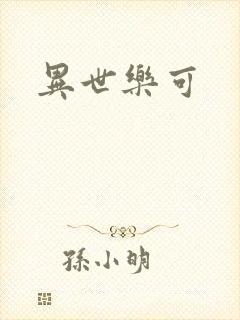 異世樂可
孫小明